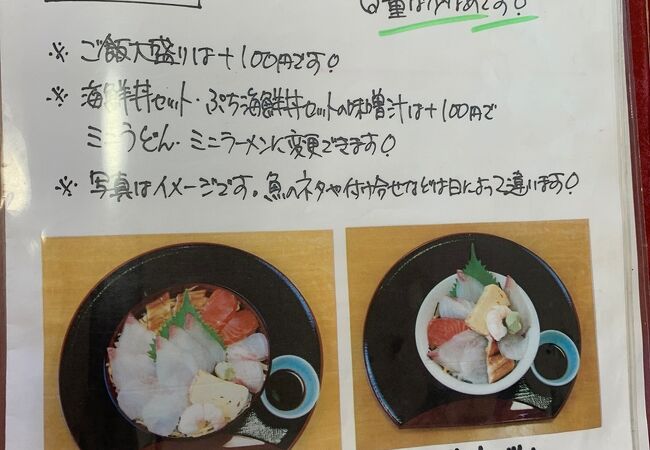 量はひかえめです！
※ ご飯大盛りは＋100円です！
※ 海鮮丼セット・ぷち海鮮丼セットの味噌汁は＋100円で
ミニうどん・ミニラーメンに変更できます！
※ 写真はイメージです。魚のネタや付け合せなどは日によって違います！